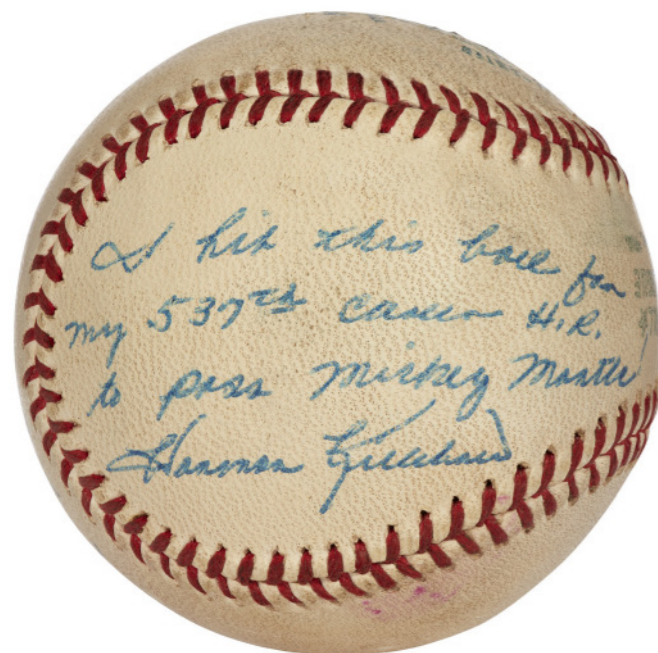 I hit this ball for
my 537th career H.R.
to pass Mickey Mantle
Harmon Killebrew